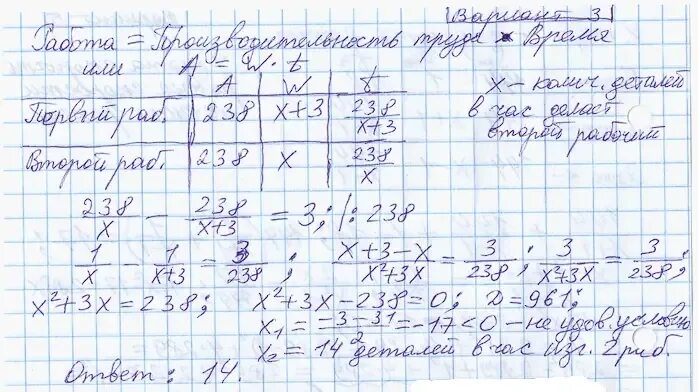 Вариант 3
Работа = Производительность труда × Время
или A = W · t
A W t
Первый раб. 238 x+3 238/(x+3)
Второй раб. 238 x 238/x
x – колич. деталей
в час делает
второй рабочий
238/x − 238/(x+3) = 3; /: 238
1/x − 1/(x+3) = 3/238; (x+3−x)/(x²+3x) = 3/238; 3/(x²+3x) = 3/238;
x²+3x = 238; x²+3x−238=0; D=961;
x₁ = (−3−31)/2 = −17 < 0 – не удов. условию
x₂ = 14 деталей в час изг. 2 раб.
Ответ: 14.